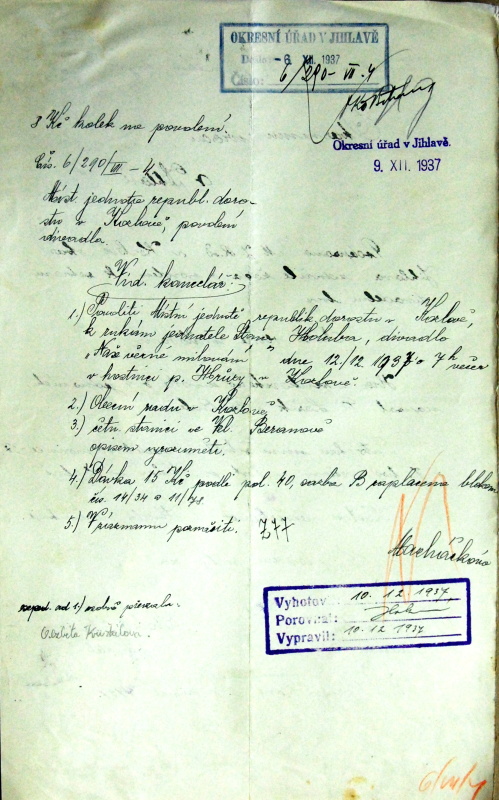 OKRESNÍ ÚŘAD V JIHLAVĚ
Došlo -6. XII. 1937
Číslo: 6/290-VII-4
3 Kč kolek na povolení.
Okresní úřad v Jihlavě.
9. XII. 1937
Čís. 6/290/VII - 4
Míst. jednota republ. doro-
stu v Kozlově, povolení
divadla.
Vnd. kancelář:
1.) Povoliti Místní jednotě republik. dorostu v Kozlově,
k rukám jednatele Holuba, divadlo
„Naše věrné milování" dne 12/12 1937 o 7 h večer
v hostinci p. Hrůzy v Kozlově
2.) Obecní radu v Kozlově
3.) četn. stanici ve Vel. Beranově
opisem vyrozuměti.
4.) Dávka 15 Kč podle pol. 40, sazba B zaplacena blokem
čís. 14/34 a 11/48
5.) V seznamu poznačiti. 277
Macháčková
Vyhotov. 10. 12. 1937
Porovnal:
Vypravil: 10. 12. 1937
ad 1) osobně převzala.